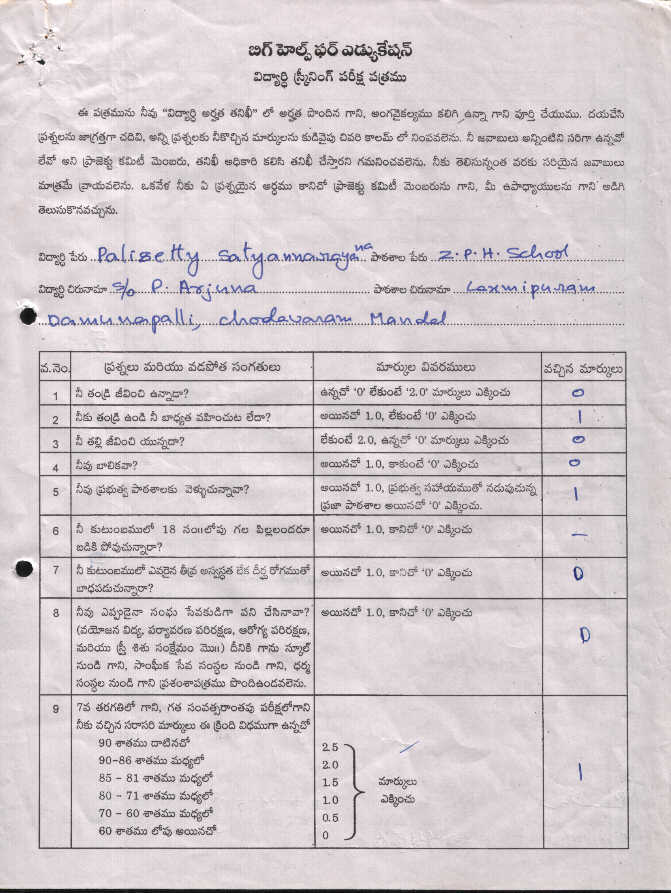 బిగ్ హెల్ప్ ఫర్ ఎడ్యుకేషన్
విద్యార్థి స్క్రీనింగ్ పరీక్ష పత్రము
ఈ పత్రమును నీవు "విద్యార్థి అర్హత తనిఖీ" లో అర్హత పొందిన గాని, అంగవైకల్యము కలిగి ఉన్నా గాని పూర్తి చేయుము. దయచేసి
ప్రశ్నలను జాగ్రత్తగా చదివి, అన్ని ప్రశ్నలకు నీకొచ్చిన మార్కులను కుడివైపు చివరి కాలమ్ లో నింపవలెను. నీ జవాబులు అన్నింటిని సరిగా ఉన్నవో
లేవో అని ప్రాజెక్టు కమిటీ మెంబరు, తనిఖీ అధికారి కలిసి తనిఖీ చేస్తారని గమనించవలెను. నీకు తెలిసున్నంత వరకు సరియైన జవాబులు
మాత్రమే వ్రాయవలెను. ఒకవేళ నీకు ఏ ప్రశ్నయైన అర్థము కానిచో ప్రాజెక్టు కమిటీ మెంబరును గాని, మీ ఉపాధ్యాయులను గాని అడిగి
తెలుసుకొనవచ్చును.
విద్యార్థి పేరు Palisetty Satyannarayana పాఠశాల పేరు Z.P.H. School
విద్యార్థి చిరునామా S/o P. Arjuna పాఠశాల చిరునామా Laxmipuram
Damunapalli, Chodavaram Mandal
వ.నెం. ప్రశ్నలు మరియు వడపోత సంగతులు మార్కుల వివరములు వచ్చిన మార్కులు
1 నీ తండ్రి జీవించి ఉన్నాడా? ఉన్నచో '0' లేకుంటే '2.0' మార్కులు ఎక్కించు 0
2 నీకు తండ్రి ఉండి నీ బాధ్యత వహించుట లేదా? అయినచో 1.0, లేకుంటే '0' ఎక్కించు 1
3 నీ తల్లి జీవించి యున్నదా? లేకుంటే 2.0, ఉన్నచో '0' మార్కులు ఎక్కించు 0
4 నీవు బాలికవా? అయినచో 1.0, కాకుంటే '0' ఎక్కించు 0
5 నీవు ప్రభుత్వ పాఠశాలకు వెళ్ళుచున్నావా? అయినచో 1.0, ప్రభుత్వ సహాయముతో నడుపుచున్న 1
ప్రజా పాఠశాల అయినచో '0' ఎక్కించు.
6 నీ కుటుంబములో 18 సం॥లోపు గల పిల్లలందరూ అయినచో 1.0, కానిచో '0' ఎక్కించు –
బడికి పోవుచున్నారా?
7 నీ కుటుంబములో ఎవరైన తీవ్ర అస్వస్థత లేక దీర్ఘ రోగముతో అయినచో 1.0, కానిచో '0' ఎక్కించు 0
బాధపడుచున్నారా?
8 నీవు ఎప్పుడైనా సంఘ సేవకుడిగా పని చేసినావా? అయినచో 1.0, కానిచో '0' ఎక్కించు 0
(వయోజన విద్య, పర్యావరణ పరిరక్షణ, ఆరోగ్య పరిరక్షణ,
మరియు స్త్రీ శిశు సంక్షేమం మొ॥) దీనికి గాను స్కూల్
నుండి గాని, సాంఘీక సేవ సంస్థల నుండి గాని, ధర్మ
సంస్థల నుండి గాని ప్రశంశాపత్రము పొందిఉండవలెను.
9 7వ తరగతిలో గాని, గత సంవత్సరాంతపు పరీక్షలోగాని
నీకు వచ్చిన సరాసరి మార్కులు ఈ క్రింది విధముగా ఉన్నచో
90 శాతము దాటినచో 2.5
90-86 శాతము మధ్యలో 2.0
85 - 81 శాతము మధ్యలో 1.5 మార్కులు 1
80 - 71 శాతము మధ్యలో 1.0 ఎక్కించు
70 - 60 శాతము మధ్యలో 0.5
60 శాతము లోపు అయినచో 0